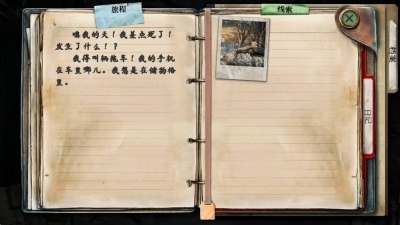 旅程
噢我的天！我差点死了！
发生了什么！？
我得叫辆拖车！我的手机
在车里哪儿。我想是在储物格
里。
线索
日记